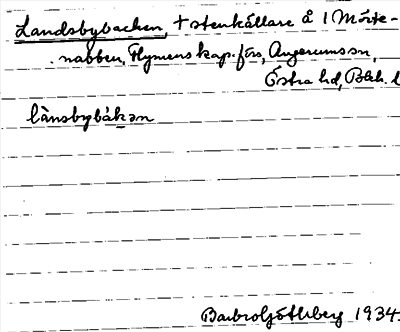 Landsbybacken, + stenkällare å 1 Mörte-
nabben, Flymens kap. förs, Augerums sn,
Östra hd, Blek. l
lànsbybàkən
Barbro Göthberg 1934.